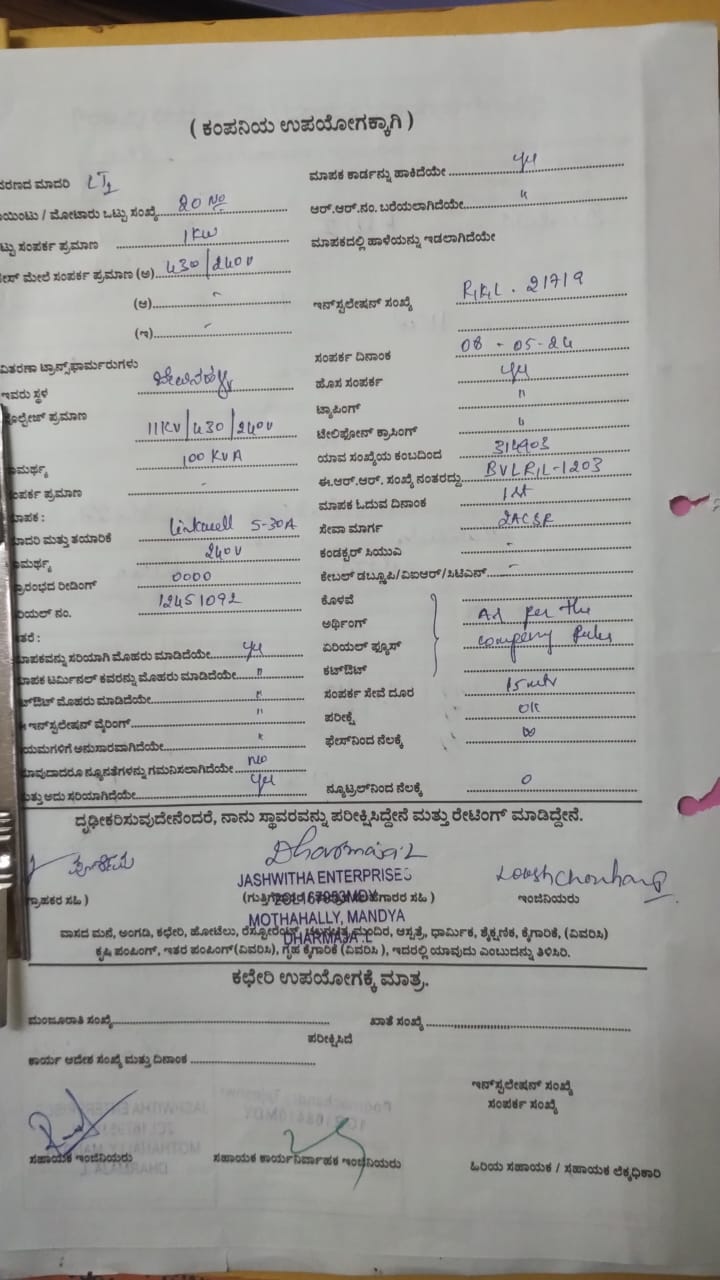 ( ಕಂಪನಿಯ ಉಪಯೋಗಕ್ಕಾಗಿ )
ವರಣದ ಮಾದರಿ LT2
ಯಿಂಟು / ಮೋಟಾರು ಒಟ್ಟು ಸಂಖ್ಯೆ 20 No
ಟ್ಟು ಸಂಪರ್ಕ ಪ್ರಮಾಣ 1KW
ಮೇಲೆ ಸಂಪರ್ಕ ಪ್ರಮಾಣ (ಅ) 430/240V
(ಆ)
(ಇ)
ವಿತರಣಾ ಟ್ರಾನ್ಸ್‌ಫಾರ್ಮರುಗಳು
ಇವರು ಸ್ಥಳ
ವೋಲ್ಟೇಜ್ ಪ್ರಮಾಣ 11KV/430/240V
ಾಮರ್ಥ್ಯ 100 KVA
ಂಪರ್ಕ ಪ್ರಮಾಣ -
ಮಾಪಕ :
ಮಾದರಿ ಮತ್ತು ತಯಾರಿಕೆ Linkwell 5-30A
ಾಮರ್ಥ್ಯ 240V
ಪ್ರಾರಂಭದ ರೀಡಿಂಗ್ 0000
ರಿಯಲ್ ನಂ. 12451092
ತರೆ :
ಮಾಪಕವನ್ನು ಸರಿಯಾಗಿ ಮೊಹರು ಮಾಡಿದೆಯೇ yes
ಮಾಪಕ ಟರ್ಮಿನಲ್ ಕವರನ್ನು ಮೊಹರು ಮಾಡಿದೆಯೇ "
ಟ್‌ಔಟ್ ಮೊಹರು ಮಾಡಿದೆಯೇ "
ಇನ್‌ಸ್ಟಲೇಷನ್ ವೈರಿಂಗ್ "
ಯಮಗಳಿಗೆ ಅನುಸಾರವಾಗಿದೆಯೇ "
ಯಾವುದಾದರೂ ನ್ಯೂನತೆಗಳನ್ನು ಗಮನಿಸಲಾಗಿದೆಯೇ no
ಮತ್ತು ಅದು ಸರಿಯಾಗಿದ್ದೆಯೇ yes
ಮಾಪಕ ಕಾರ್ಡನ್ನು ಹಾಕಿದೆಯೇ yes
ಆರ್.ಆರ್.ನಂ. ಬರೆಯಲಾಗಿದೆಯೇ "
ಮಾಪಕದಲ್ಲಿ ಹಾಳೆಯನ್ನು ಇಡಲಾಗಿದೆಯೇ
ಇನ್‌ಸ್ಟಲೇಷನ್ ಸಂಖ್ಯೆ 21719
ಸಂಪರ್ಕ ದಿನಾಂಕ 08-05-24
ಹೊಸ ಸಂಪರ್ಕ yes
ಟ್ಯಾಪಿಂಗ್ "
ಟೆಲಿಫೋನ್ ಕ್ರಾಸಿಂಗ್ "
ಯಾವ ಸಂಖ್ಯೆಯ ಕಂಬದಿಂದ 314903
ಈ.ಆರ್.ಆರ್. ಸಂಖ್ಯೆ ನಂತರದ್ದು BVLRIL-1203
ಮಾಪಕ ಓದುವ ದಿನಾಂಕ 1st
ಸೇವಾ ಮಾರ್ಗ 2ACSR
ಕಂಡಕ್ಟರ್ ಸಿಯುಎ -
ಕೇಬಲ್ ಡಬ್ಲ್ಯೂಪಿ/ವಿಐಆರ್/ಸಿಟಿಎಸ್ -
ಕೊಳವೆ
ಅರ್ಥಿಂಗ್ As per the
ಏರಿಯಲ್ ಫ್ಯೂಸ್ company Rules
ಕಟ್‌ಔಟ್
ಸಂಪರ್ಕ ಸೇವೆ ದೂರ 15mtr
ಪರೀಕ್ಷೆ OK
ಫೇಸ್‌ನಿಂದ ನೆಲಕ್ಕೆ ∞
ನ್ಯೂಟ್ರಲ್‌ನಿಂದ ನೆಲಕ್ಕೆ 0
ದೃಢೀಕರಿಸುವುದೇನೆಂದರೆ, ನಾನು ಸ್ಥಾವರವನ್ನು ಪರೀಕ್ಷಿಸಿದ್ದೇನೆ ಮತ್ತು ರೇಟಿಂಗ್ ಮಾಡಿದ್ದೇನೆ.
Dharmaja.L
JASHWITHA ENTERPRISES
ಗ್ರಾಹಕರ ಸಹಿ )
2CL167953MDY
ಇಂಜಿನಿಯರು
MOTHAHALLY, MANDYA
ವಾಸದ ಮನೆ, ಅಂಗಡಿ, ಕಛೇರಿ, ಹೋಟೆಲು, ರೆಸ್ಟೋರೆಂಟ್, ಮಂದಿರ, ಆಸ್ಪತ್ರೆ, ಧಾರ್ಮಿಕ, ಶೈಕ್ಷಣಿಕ, ಕೈಗಾರಿಕೆ, (ವಿವರಿಸಿ)
DHARMAJA .L
ಕೃಷಿ ಪಂಪಿಂಗ್, ಇತರ ಪಂಪಿಂಗ್(ವಿವರಿಸಿ), ಗೃಹ ಕೈಗಾರಿಕೆ (ವಿವರಿಸಿ ), ಇದರಲ್ಲಿ ಯಾವುದು ಎಂಬುದನ್ನು ತಿಳಿಸಿರಿ.
ಕಛೇರಿ ಉಪಯೋಗಕ್ಕೆ ಮಾತ್ರ.
ಮಂಜೂರಾತಿ ಸಂಖ್ಯೆ ಖಾತೆ ಸಂಖ್ಯೆ
ಪರೀಕ್ಷಿಸಿದೆ
ಕಾರ್ಯ ಆದೇಶ ಸಂಖ್ಯೆ ಮತ್ತು ದಿನಾಂಕ
ಇನ್‌ಸ್ಟಲೇಷನ್ ಸಂಖ್ಯೆ
ಸಂಪರ್ಕ ಸಂಖ್ಯೆ
ಸಹಾಯಕ ಇಂಜಿನಿಯರು ಸಹಾಯಕ ಕಾರ್ಯನಿರ್ವಾಹಕ ಇಂಜಿನಿಯರು ಹಿರಿಯ ಸಹಾಯಕ / ಸಹಾಯಕ ಲೆಕ್ಕಾಧಿಕಾರಿ